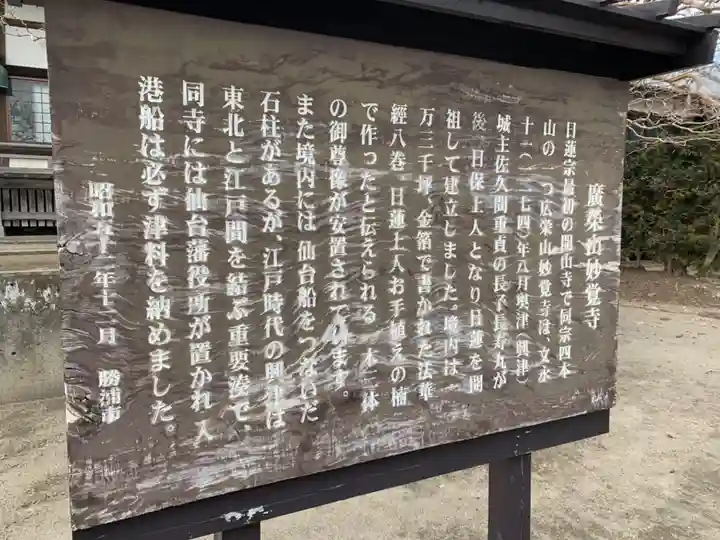 廣榮山妙覚寺
日蓮宗最初の開山寺で同宗四本
山の一つ広栄山妙覚寺は、文永
十一(一二七四)年八月奥津(興津)
城主佐久間重貞の長子長寿丸が
後、日保上人となり日蓮を開
祖して建立しました。境内は一
万三千坪、金箔で書かれた法華
經八巻、日蓮上人お手植えの楠
で作ったと伝えられる一木三体
の御尊像が安置されています。
また境内には、仙台船をつないだ
石柱があるが、江戸時代の興津は
東北と江戸間を結ぶ重要湊で、
同寺には仙台藩役所が置かれ入
港船は必ず津料を納めました。
昭和五十二年十二月 勝浦市